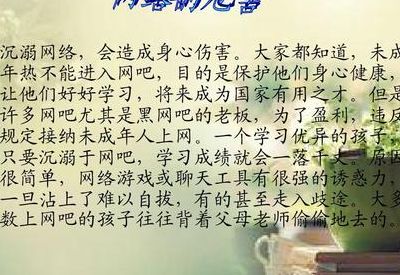 网络的危害
沉溺网络，会造成身心伤害。大家都知道，未成
年热不能进入网吧，目的是保护他们身心健康，
让他们好好学习，将来成为国家有用之才。但是
许多网吧尤其是黑网吧的老板，为了盈利，违反
规定接纳未成年人上网。一个学习优异的孩子，
只要沉溺于网吧，学习成绩就会一落千丈。原因
很简单，网络游戏或聊天工具有很强的诱惑力，
一旦沾上了难以自拔，有的甚至走入歧途。大多
数上网吧的孩子往往背着父母老师偷偷地去的。